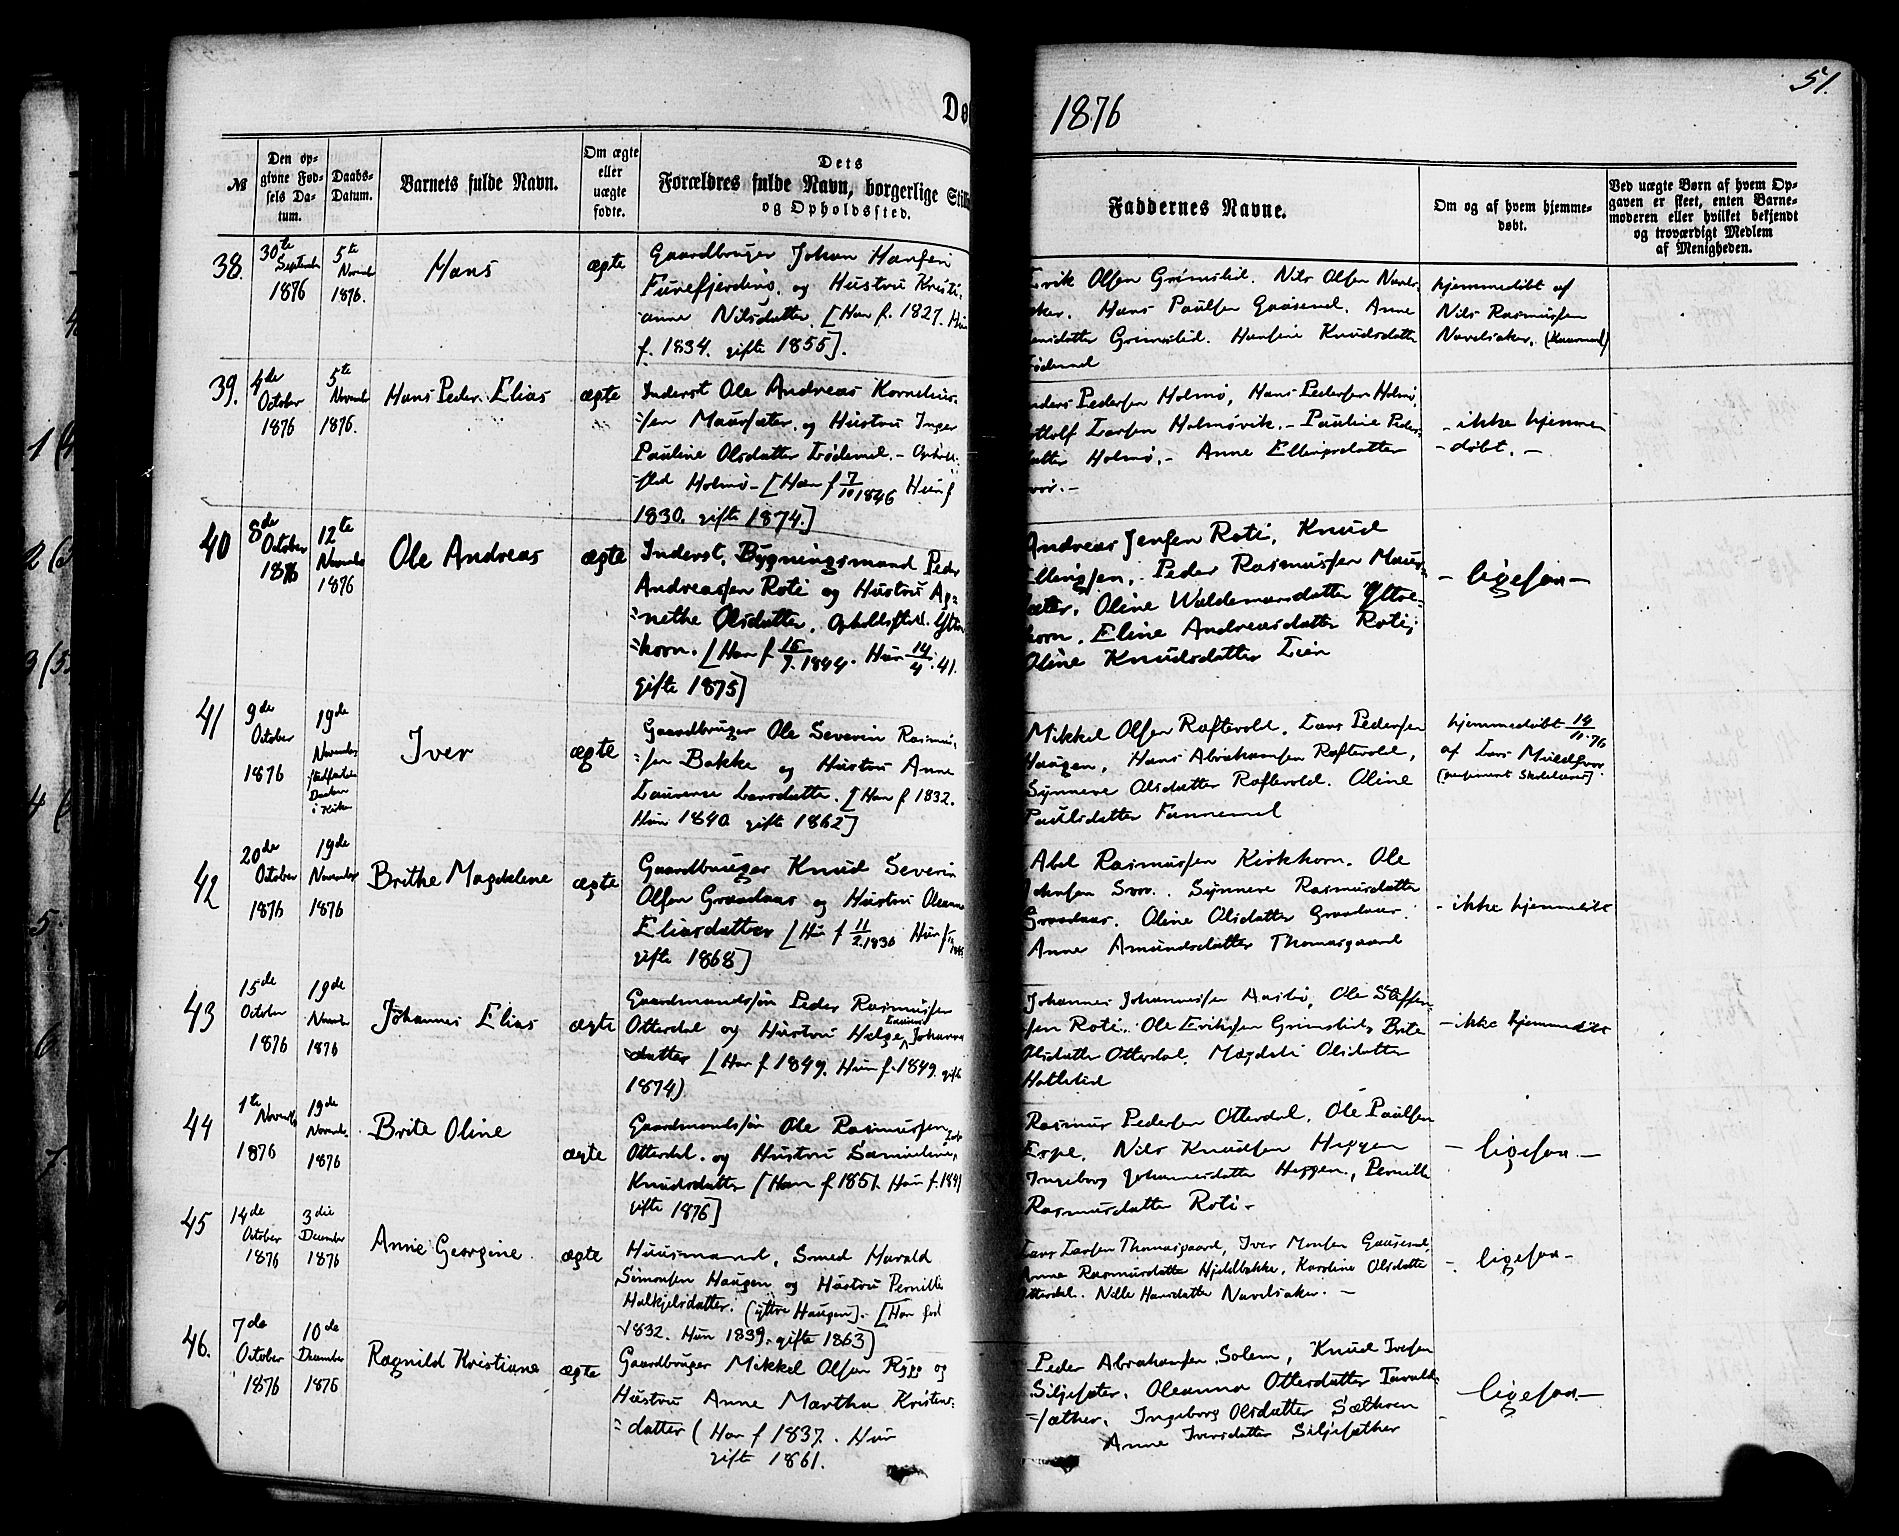 51.
Dø
1876
№
Den op-
givne Fød-
sels Da-
tum.
Daabs-
Datum.
Barnets fulde Navn.
Om ægte
eller
uægte
fødte.
Dets
Forældres fulde Navn, borgerlige Still
og Opholdssted.
Faddernes Navne.
Om og af hvem hjemme-
døbt.
Ved uægte Børn af hvem Op-
gaven er skeet, enten Barne-
moderen eller hvilket bekjendt
og troværdigt Medlem
af Menigheden.
38.
30te
Septembr
1876
5te
Novembr
1876.
Hans
ægte
Gaardbruger Johan Hansen
Furefjerding, og Hustru Kristi-
-anne Nilsdatter. [Han f. 1827. Hun
f. 1834. gifte 1855].
Erik Olsen Grimstid. Nils Olsen Navel-
saker. Hans Paulsen Gaasemd. Anne
Jensdatter Grimstid. Hansine Knudsdatter
Lødemel
hjemmedøbt af
Nils Rasmussen
Navelsaker. (Huusmand)
39.
4de
October
1876
5te
Novembr
1876.
Hans Peder Elias
ægte
Inderst Ole Andreas Kornelius-
-sen Maursæter. og Hustru Inger
Pauline Olsdatter Lødemel. - Ophold-
-sted Holmø - [Han f 7/10 1846 Hun f
1830. gifte 1874.]
Anders Pedersen Holmø, Hans Pedersen Holmø,
Ludolf Larsen Holmøvik. - Pauline Peders-
datter Holmø. - Anne Ellingsdatter
Svor. -
- ikke hjemme
- døbt. -
40
8de
October
1876
12te
Novembr
1876
Ole Andreas
ægte
Inderst, Bygningsmand Peder
Andreassen Roti og Hustru Ag-
-nethe Olsdatter. Opholdssted. Ytre
-horn. [Han f 16/7. 1844. Hun 14/4. 41.
gifte 1875]
Andreas Jensen Roti, Knud
Ellingsen, Peder Rasmussen Maur-
sæter. Oline Waldemarsdatter Yttre-
horn. Eline Andreasdatter Roti,
Oline Knudsdatter Lien
- ligesaa -
41
9de
October
1876
19de
November
Daaben
i Kirke
Iver
ægte
Gaardbruger Ole Severin Rasmus-
-sen Bakke og Hustru Anne
Laurense Larsdatter. [Han f 1832.
Hun 1840 gifte 1862]
Mikkel Olsen Raftevold. Lars Pedersen
Haugen, Hans Abrahamsen Raftevold,
Synneve Olsdatter Raftevold. Oline
Paulsdatter Fannemel
hjemmedøbt 14/11. 76
af Lars Muldsvor
42
20de
October
1876
19de
November
1876
Brithe Magdalene
ægte
Gaardbruger Knud Severin
Olsen Graadaas og Hustru Oleanne
Eliasdatter [Han f 11/2. 1830 Hun f
gifte 1868]
Abel Rasmussen Kirkhorn. Ole
Johnsen Svor. Synneve Rasmusdatter
Graadaas. Oline Olsdatter Graadaas.
Anne Amundsdatter Thomasgaard
- ikke hjemmedøbt
43
15de
October
1876
19de
Novbr
1876
Johannes Elias
ægte
Gaardmandssøn Peder Rasmussen
Otterdal og Hustru Helge Johanne
datter [Han f 1849. Hun f. 1849. gifte
1874).
Johannes Johannessen Aarbø, Ole Steffen-
-sen Roti. Ole Eriksen Grimstid, Brite
Olsdatter Otterdal. Magdeli Olsdatter
Holtstid
- ikke hjemmedøbt
44
1te
Novembr
1876
19de
Novemb.
1876
Brite Oline
ægte
Gaardmandssøn Ole Rasmussen
Otterdal. og Hustru Samueline
Knudsdatter [Han f. 1851. Hun f. 184
gifte 1876]
Rasmus Pedersen Otterdal. Ole Paulsen
Espe. Nils Knudsen Heggen
Ingeborg Johannesdatter Heggen, Pernille
Rasmusdatter Roti.
- ligesaa -
45
14de
October
1876
3die
December
1876
Anne Georgine
ægte
Huusmand, Smed Harald
Simonsen Haugen og Hustru Pernille
Halkjelsdatter. (yttre Haugen). - [Han født
1832. Hun 1839. gifte 1863]
Lars Larsen Thomasgaard, Iver Monsen Gaasemd.
Anne Rasmusdatter Hjeldbakke, Karoline Olsdatter
Otterdal. Nille Hansdatter Navelsaker. -
- ligesaa -
46.
7de
October
1876
10de
December
1876
Ragnild Kristiane
ægte
Gaardbruger Mikkel Olsen Rygg og
Hustru Anne Martha Kristens-
-datter (Han f 1837. Hun
gifte 1861.
Peder Abrahamsen Solem, Knud Iversen
Siljesæter. Oleanna Ottersdatter Tarald-
-sæther. Ingeborg Olsdatter Sæthren
Anne Iversdatter Siljesæther
- ligesaa -